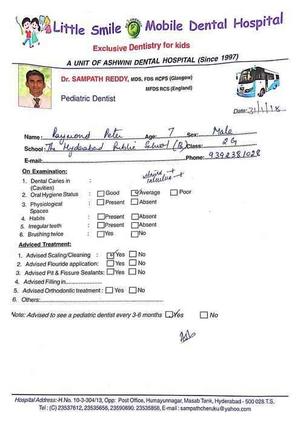 Little Smile Mobile Dental Hospital
Exclusive Dentistry for kids
A UNIT OF ASHWINI DENTAL HOSPITAL (Since 1997)
Dr. SAMPATH REDDY, MDS, FDS RCPS (Glasgow)
MFDS RCS (England)
Pediatric Dentist
Date: 31/1/18
Name: Raymond Peter Age: 7 Sex: Male
School: The Hyderabad Public School (B) Class: 2G
E-mail: Phone: 9392381028
On Examination:
1. Dental Caries in
(Cavities)
stains +
calculus +
2. Oral Hygiene Status : Good Average Poor
3. Physiological Present Absent
Spaces
4. Habits : Present Absent
5. Irregular teeth : Present Absent
6. Brushing twice : Yes No
Adviced Treatment:
1. Advised Scaling/Cleaning : Yes No
2. Advised Flouride application: Yes No
3. Advised Pit & Fissure Sealants: Yes No
4. Advised Filling in
5. Advised Orthodontic treatment : Yes No
6. Others:
Note: Advised to see a pediatric dentist every 3-6 months Yes No
Hospital Address: H.No. 10-3-304/13, Opp: Post Office, Humayunnagar, Masab Tank, Hyderabad - 500 028.T.S.
Tel : (C) 23537612, 23535656, 23590690, 23535858, E-mail : sampathcheruku@yahoo.com